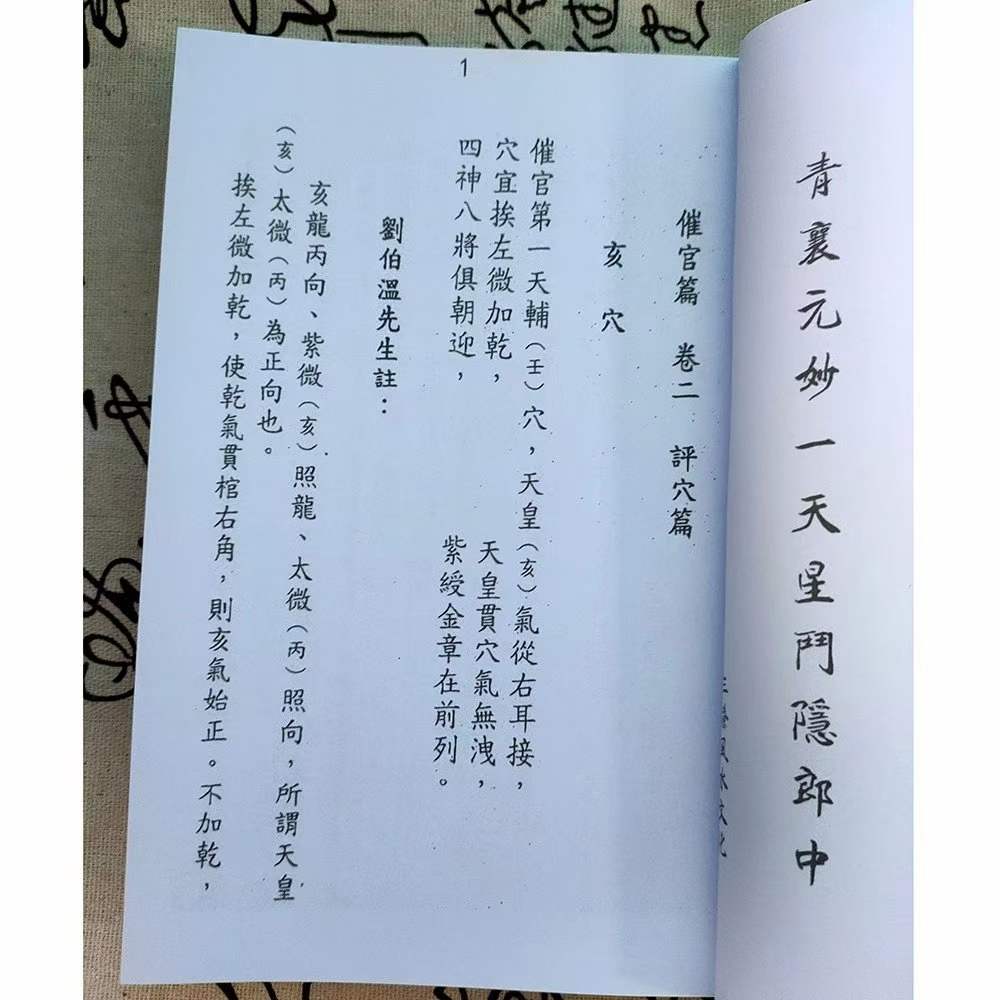 青襄元妙一天星鬥隱郎中
1
催官篇 卷二 評穴篇
亥穴
催官第一天輔（壬）穴，天皇（亥）氣從右耳接，
穴宜挨左微加乾， 天皇貫穴氣無洩，
四神八將俱朝迎， 紫綬金章在前列。
劉伯溫先生註：
亥龍丙向、紫微（亥）照龍、太微（丙）照向，所謂天皇
（亥）太微（丙）為正向也。
挨左微加乾，使乾氣貫棺右角，則亥氣始正。不加乾，